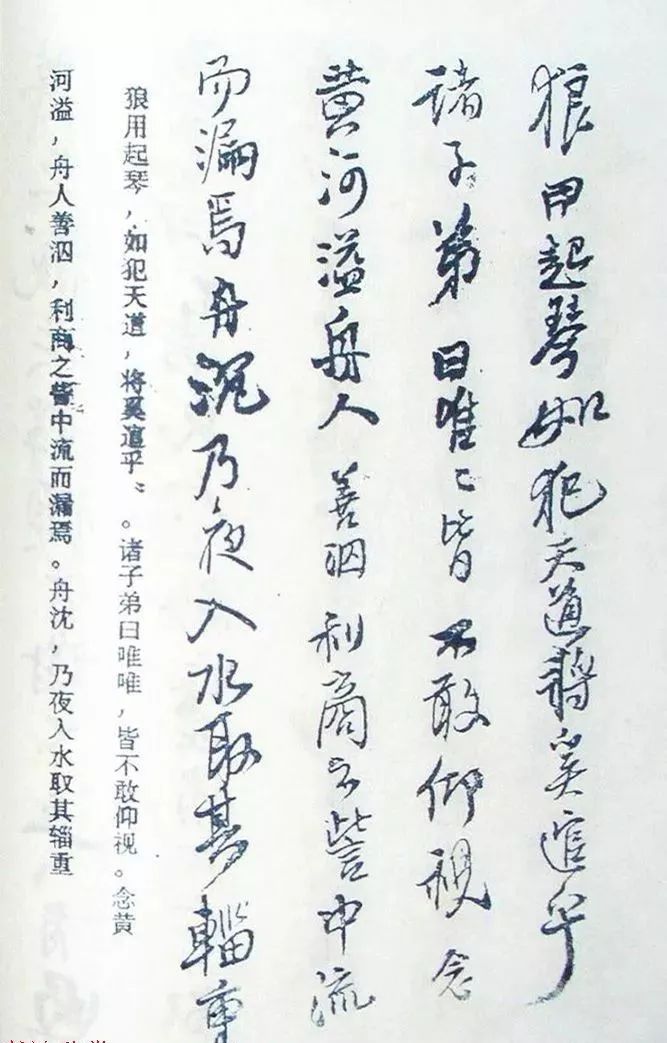 狼甲起琴如犯天道将奚逭乎
诸子弟曰唯〻皆不敢仰视念
黄河溢舟人善泅利商之訾中流
而漏焉舟沉乃夜入水取其辎重
狼用起琴，如犯天道，将奚逭乎、。诸子弟曰唯唯，皆不敢仰视。念黄
河溢，舟人善泅，利商之訾中流而漏焉。舟沈，乃夜入水取其辎重